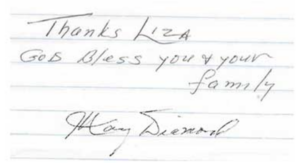 Thanks Liza
God Bless you & your
family
May Diamond